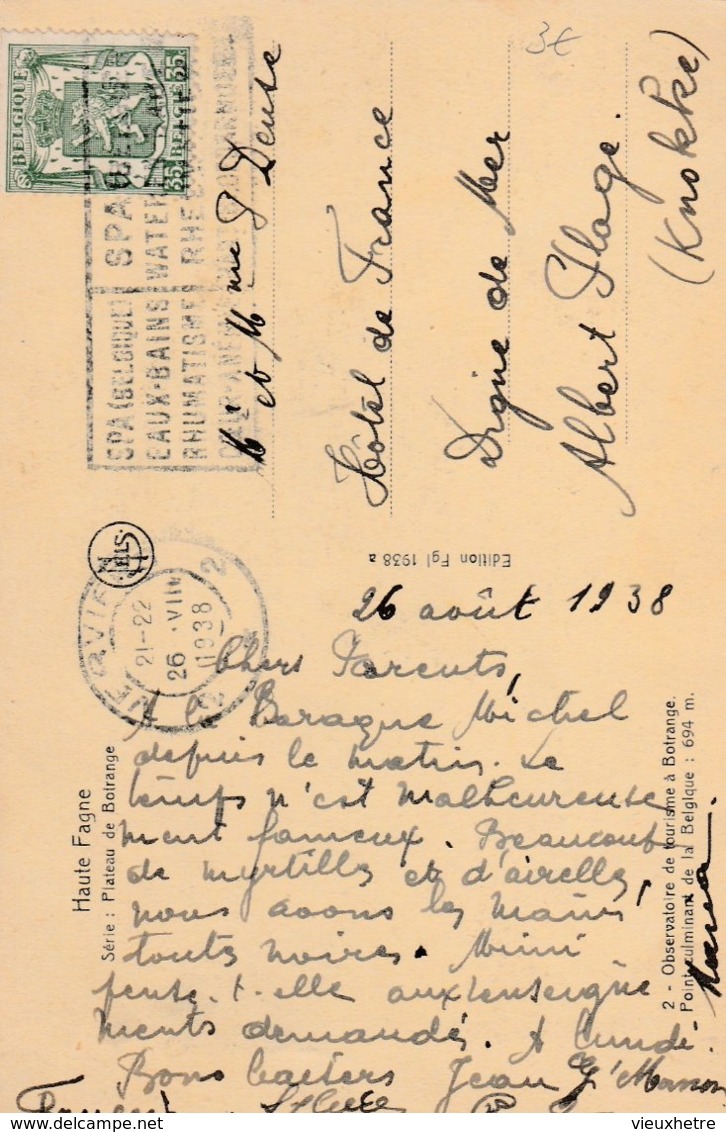 3€
BELGIQUE
BELGIE
35
35
SPA (BELGIQUE)
EAUX-BAINS
RHUMATISME
SPA
WATER
M. et Mme J Deuse
Hôtel de France
Digue de Mer
Albert Plage.
(Knokke)
NELS
VERVIERS
21-22
26 VIII
1938
2
2
Edition Fgl 1938 a
Haute Fagne
Série : Plateau de Botrange
2 - Observatoire de tourisme à Botrange.
Point culminant de la Belgique : 694 m.
26 août 1938
Chers Parents,
A la Baraque Michel
depuis le matin. Le
temps n'est malheureuse
ment fameux. Beaucoup
de myrtilles et d'airelles,
nous avons les mains
toutes noires. Mimi
pense-t-elle aux renseigne
ments demandés. A lundi.
Bons baisers Jean
vieuxhetre